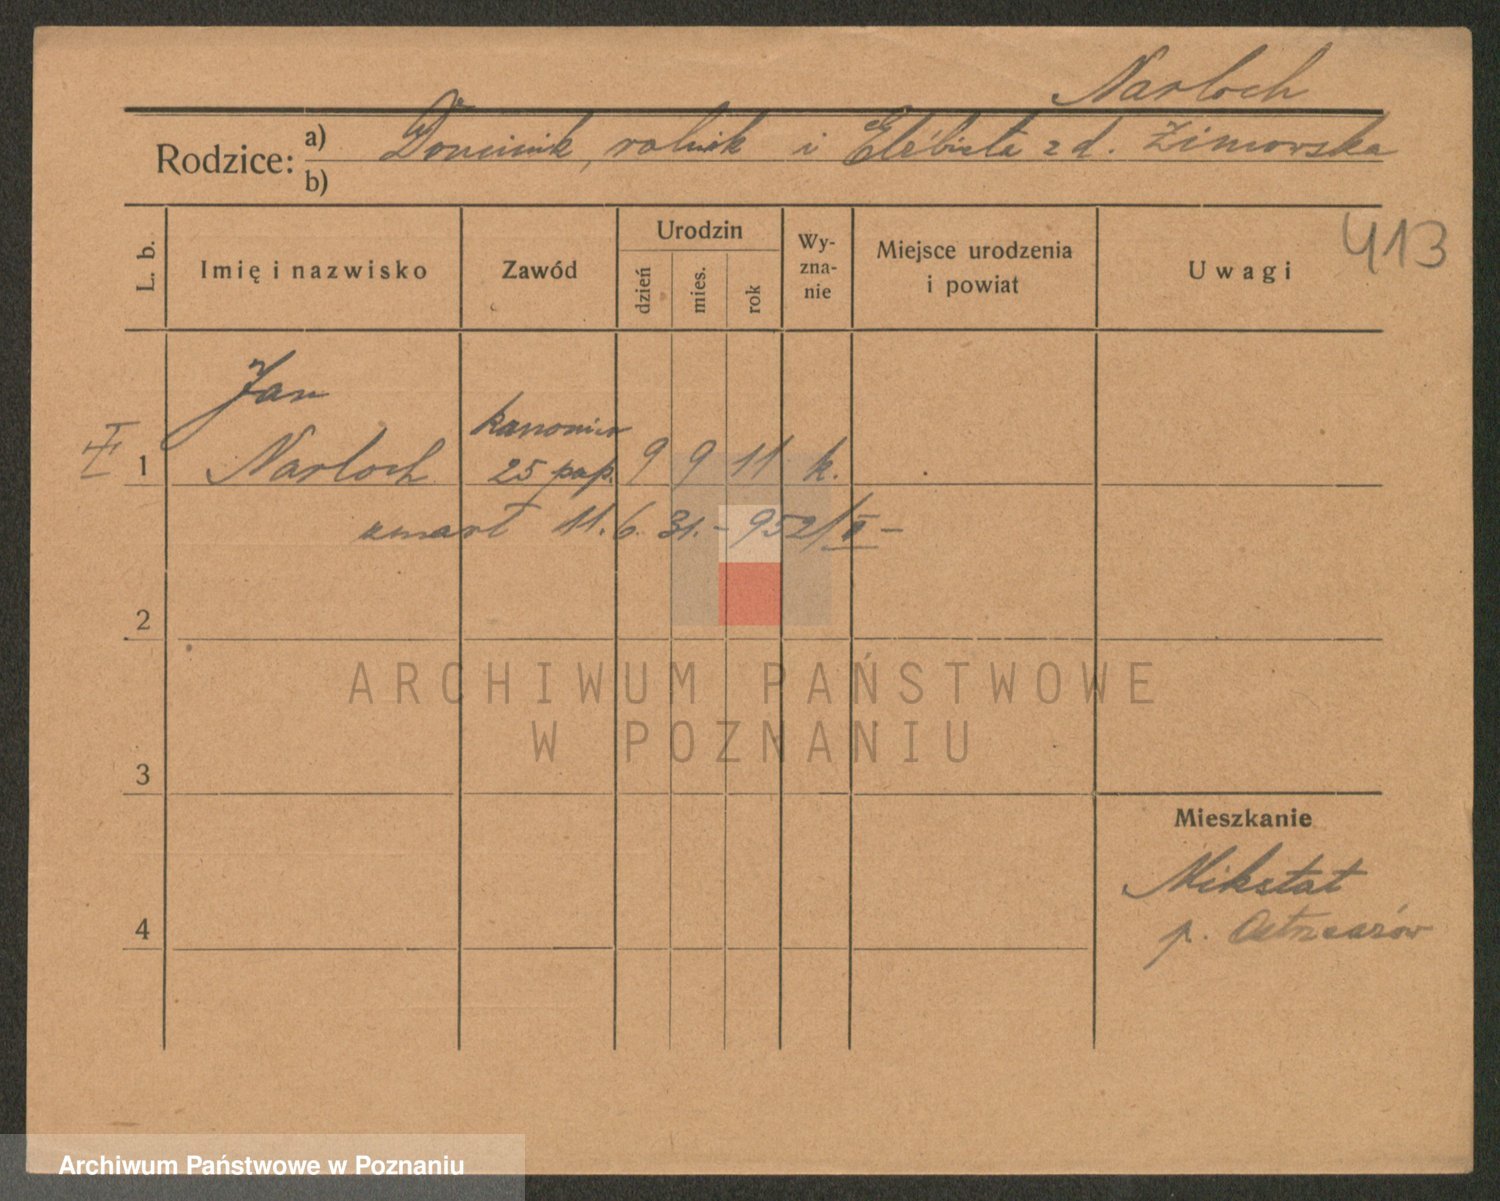 Narloch
Rodzice: a) Dominik, rolnik i Elżbieta z d. Zimorska
b)
L. b. Imię i nazwisko Zawód Urodzin dzień mies. rok Wy-zna-nie Miejsce urodzenia i powiat Uwagi 413
Jan
kanonier
1 Narloch 25 pap. 9 9 11 k.
umarł 11. 6. 31. - 952/II -
2
ARCHIWUM PAŃSTWOWE
W POZNANIU
3
Mieszkanie
Mikstat
4 p. Ostrzeszów
Archiwum Państwowe w Poznaniu